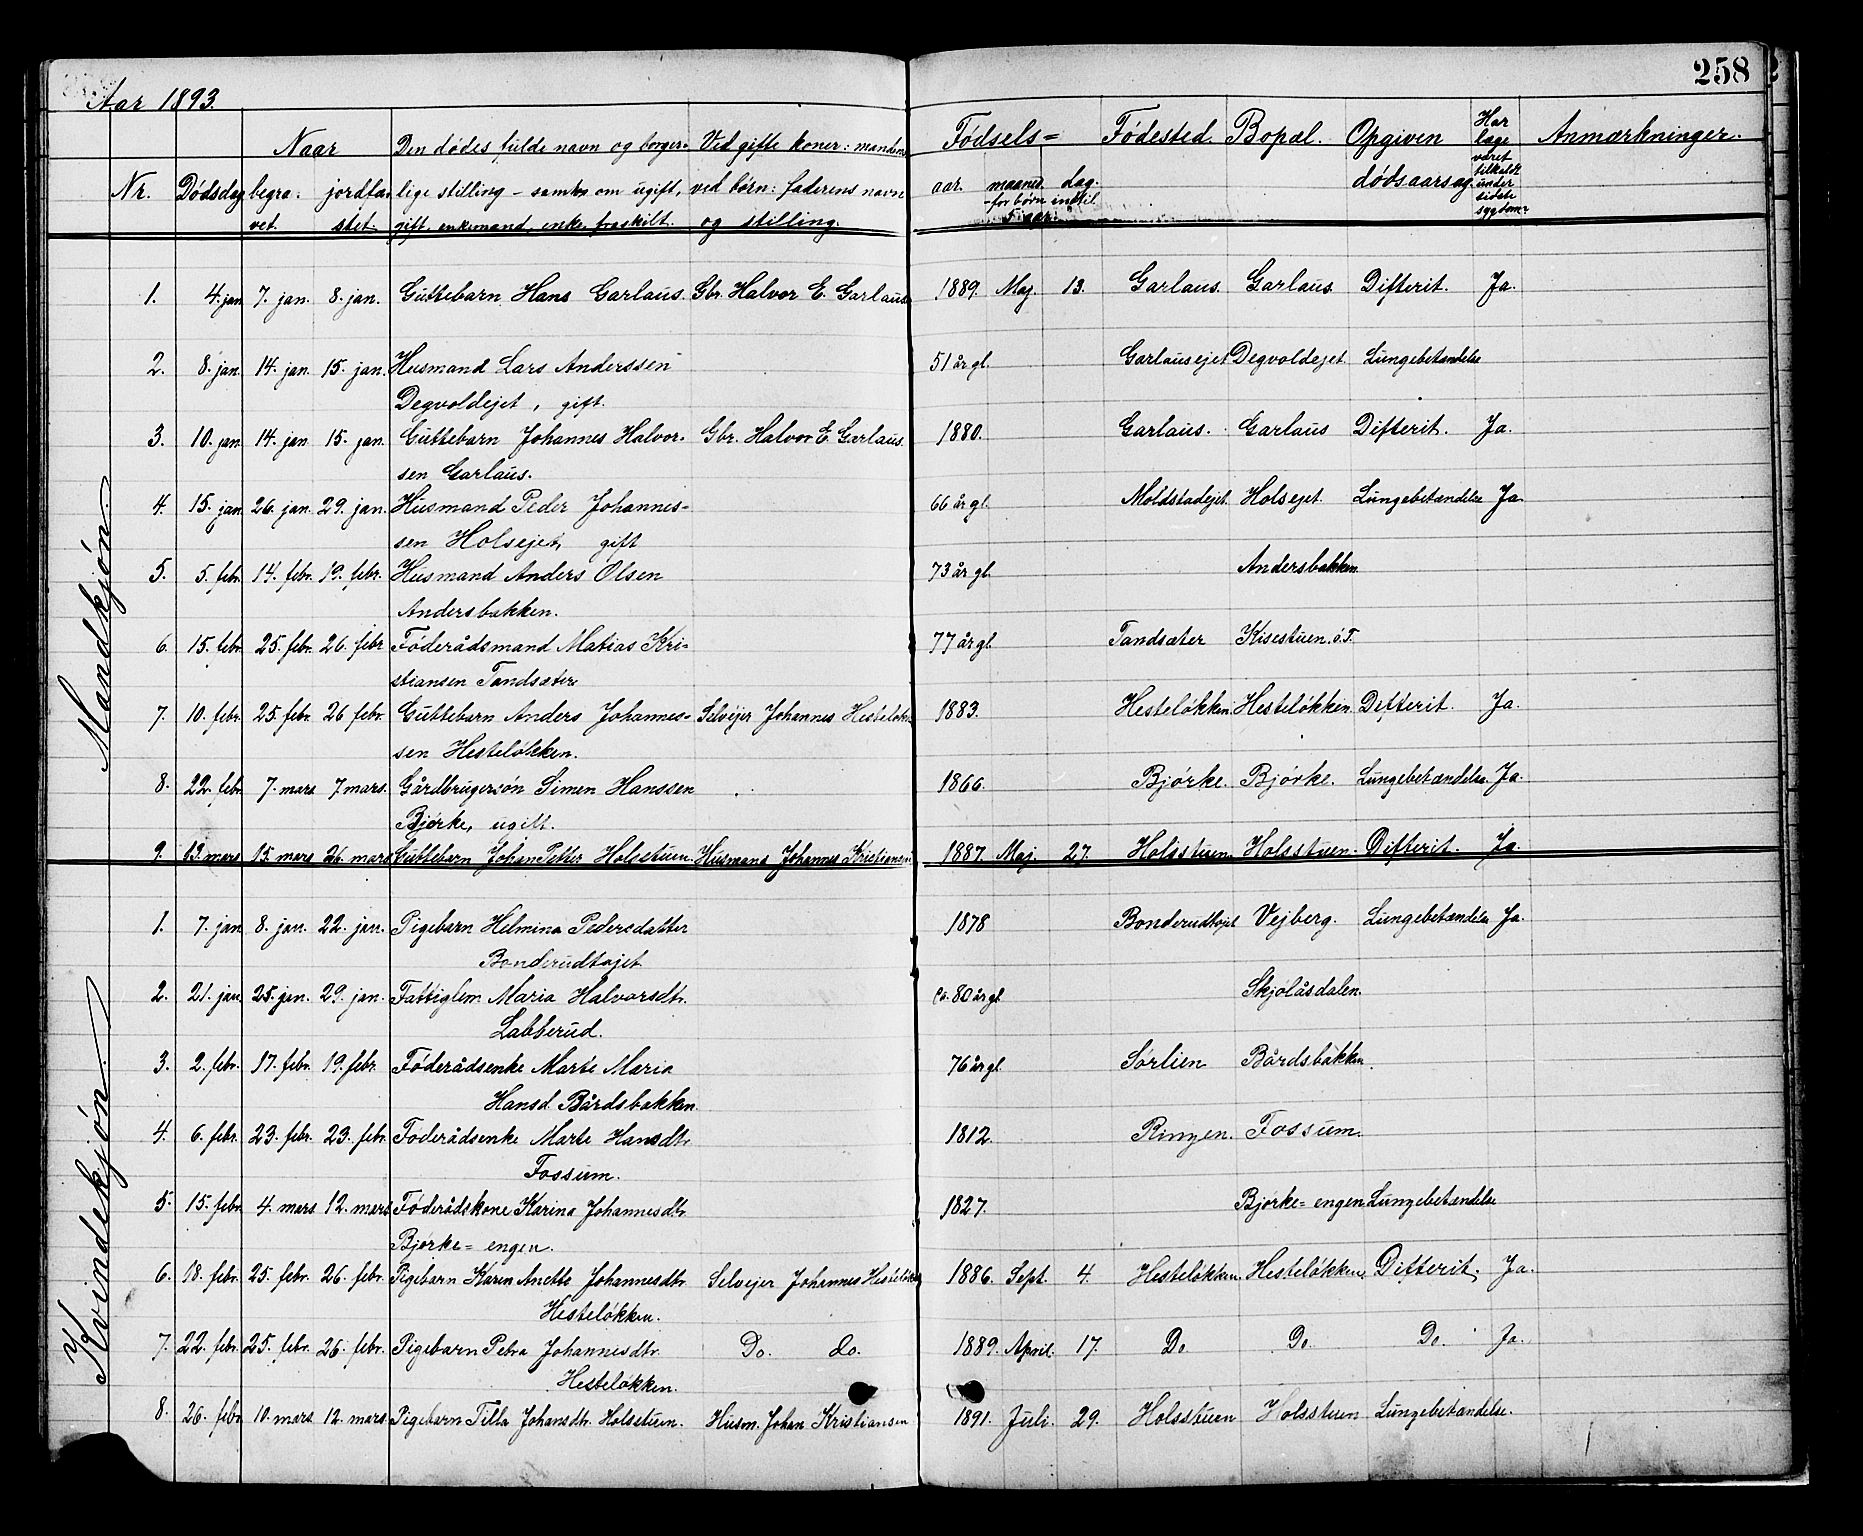 258
Aar 1893.
Nr. Dødsdag Naar begra- vet. jordfæ- stet. Den dødes fulde navn og borger- lige stilling - samt om ugift, gift, enkemand, enke, fraskilt. Ved gifte koner: mandens ved børn: faderens navn og stilling. Fødsels= aar. maaned. dag. - for børn indtil 5 aar. Fødested. Bopæl. Opgiven dødsaarsag. Har læge været tilkaldt under sidste sygdom? Anmærkninger.
Mandkjøn.
1. 4. jan 7. jan. 8. jan. Guttebarn Hans Garlaus. Gbr. Halvor E. Garlaus 1889. Maj. 13. Garlaus. Garlaus. Difterit. Ja.
2. 8. jan 14. jan. 15. jan. Husmand Lars Anderssen 51 år gl. Garlausejet Degvoldejet. Lungebetændelse
Degvoldejet, gift.
3. 10. jan 14. jan 15. jan. Guttebarn Johannes Halvor- Gbr. Halvor E. Garlaus 1880. Garlaus. Garlaus Difterit. Ja.
sen Garlaus.
4. 15. jan 26. jan. 29. jan. Husmand Peder Johannes- 66 år gl. Moldstadejet Holsejet. Lungebetændelse Ja.
sen Holsejet, gift
5. 5. febr. 14. febr. 19. febr. Husmand Anders Olsen 73 år gl. Andersbakken
Andersbakken.
6. 15. febr. 25. febr. 26. febr Føderådsmand Matias Kri- 77 år gl. Tandsæter Kisestuen. ö.T.
stiansen Tandsæter
7. 10. febr. 25. febr 26 febr. Guttebarn Anders Johannes- Selvejer Johannes Hesteløkk 1883. Hesteløkken. Hesteløkken. Difterit. Ja.
sen Hesteløkken.
8. 22. febr. 7. mars 7 mars. Gårdbrugersøn Simen Hanssen 1866. Bjørke. Bjørke. Lungebetændelse. Ja.
Bjørke, ugift.
9. 13. mars 15. mars 26. mars Guttebarn Johan Petter Holsstuen Husmand Johannes Kristiansen 1887. Maj. 27. Holsstuen. Holsstuen. Difterit. Ja.
Kvindekjøn.
1. 7. jan 8. jan. 22. jan. Pigebarn Helmina Pedersdatter 1878 Bonderudtajet Vejberg. Lungebetændelse Ja.
Bonderudtajet
2. 21. jan 25. jan. 29. jan. Fattiglem Maria Halvorsdtr. ca. 80 år gl Skjolåsdalen.
Labberud.
3. 2. febr. 17. febr. 19. febr. Føderådsenke Marte Maria 76 år gl. Sørlien Bårdsbakken.
Hansd Bårdsbakken
4. 6. febr. 23. febr. 23. febr Føderådsenke Marte Hansdtr. 1812. Ringen. Fossum.
Fossum.
5. 15. febr 4. mars 12. mars Føderådskone Karina Johannesdtr 1827. Bjørke= engen Lungebetændelse
Bjørke= engen.
6. 18. febr. 25. febr. 26. febr. Pigebarn Karen Anette Johannesdtr Selvejer Johannes Hesteløkk 1886. Sept. 4. Hesteløkken. Hesteløkken. Difterit. Ja.
Hesteløkken.
7. 22. febr. 25. febr. 26. febr. Pigebarn Petra Johannesdtr. Do. do. 1889. April. 17. Do Do. Do. Ja.
Hesteløkken.
8. 26. febr 10. mars. 12. mars. Pigebarn Tilla Johansdtr. Holsstuen. Husm. Johan Kristiansen 1891. Juli. 29. Holsstuen Holsstuen Lungebetændelse.